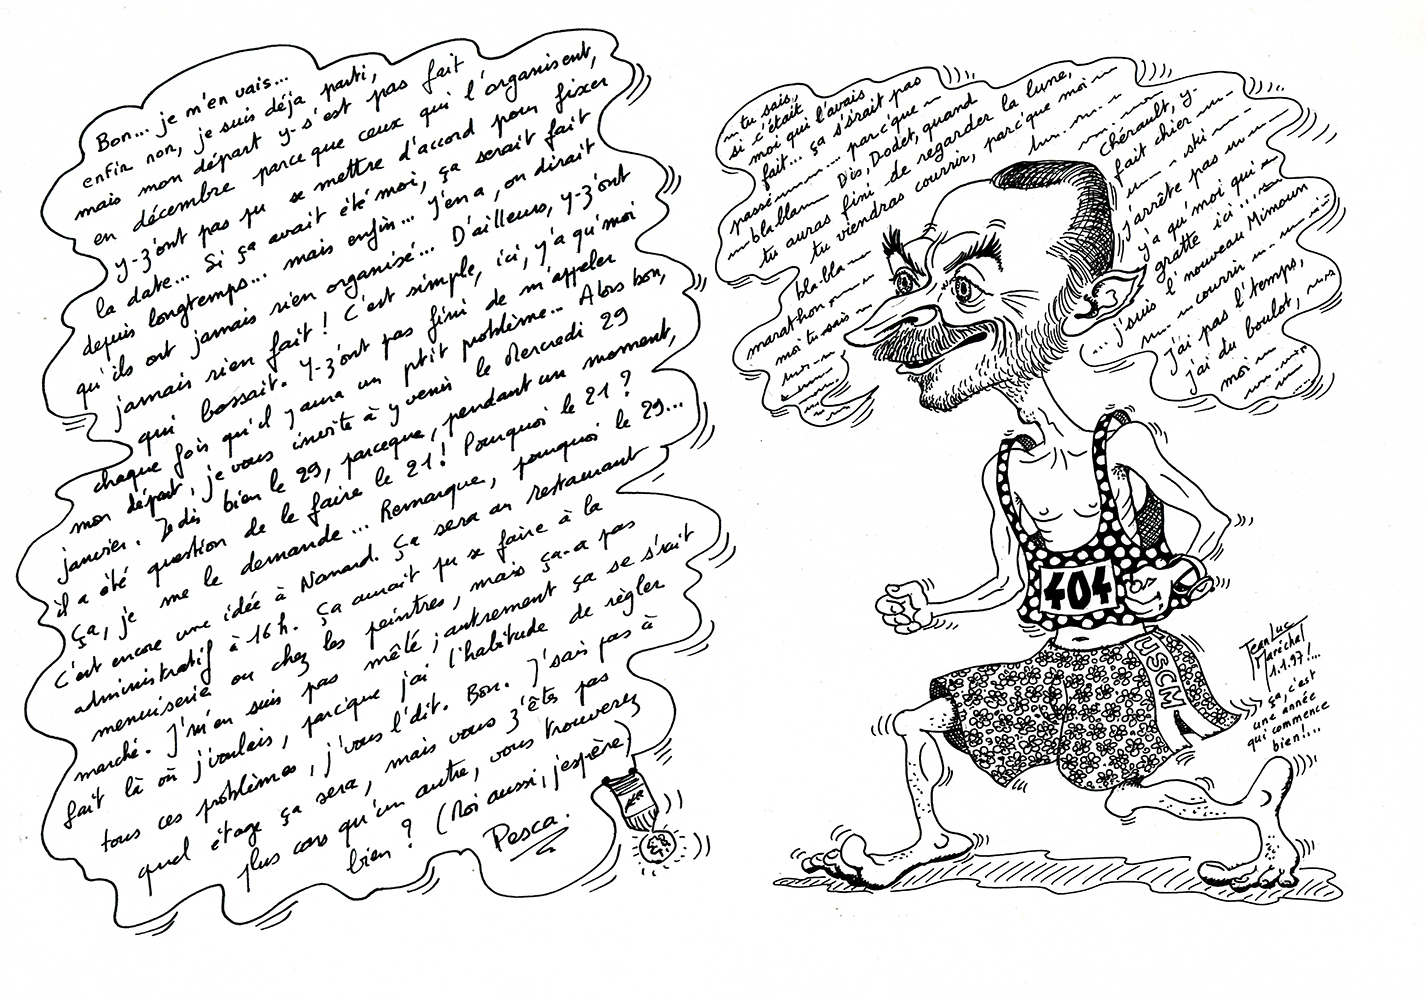 Bon... je m'en vais...
enfin non, je suis déja parti,
mais mon départ y-s'est pas fait
en décembre parce que ceux qui l'organisent,
y-z'ont pas pu se mettre d'accord pour fixer
la date... Si ça avait été moi, ça serait fait
depuis longtemps... mais enfin... Y'en a, on dirait
qu'ils ont jamais rien organisé... D'ailleurs, y-z'ont
jamais rien fait ! C'est simple, ici, y'a qu'moi
qui bossait. Y-z'ont pas fini de m'appeler
chaque fois qu'il y aura un p'tit problème... Alors bon,
mon départ, je vous invite à y venir le Mercredi 29
janvier. Je dis bien le 29, parceque, pendant un moment,
il a été question de le faire le 21 ! Pourquoi le 21 ?
ça, je me le demande... Remarque, pourquoi le 29...
C'est encore une idée à Nanard. Ça sera au restaurant
administratif à 16 h. Ça aurait pu se faire à la
menuiserie ou chez les peintres, mais ça-a pas
marché. J'm'en suis pas mêlé, autrement ça se s'rait
fait là où j'voulais, parc'que j'ai l'habitude de règler
tous ces problèmes, j'vous l'dit. Bon. J'sais pas à
quel étage ça sera, mais vous z'êts pas
plus cons qu'un autre, vous trouverez
bien ? (Moi aussi, j'espère)
Pesca.
tu sais,
si c'était
moi qui l'avais
fait... ça s'srait pas
passé parc'que
blablan
Dis, Dodet, quand
tu auras fini de regarder la lune,
tu viendras courrir, parc'que moi
blabla
marathon
moi tu sais
Chérault, y-
fait chier
ski
j'arrête pas
y'a qu'moi qui
gratte ici
... j'suis l'nouveau Mimoun
courrir
j'ai pas l'temps,
j'ai du boulot,
moi
404
USCM
Jean Luc
Maréchal
1.1.97 !...
ça, c'est
une année
qui commence
bien !...